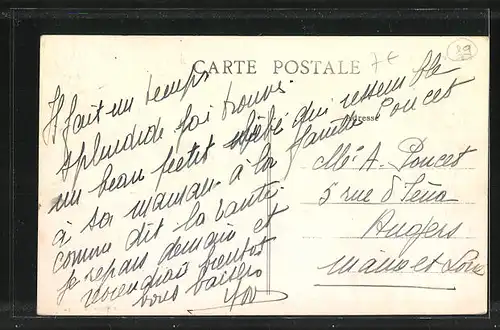 CARTE POSTALE
89
7€
Il fait un temps
splendide j'ai trouvé
un beau petit bébé qui ressemble
à sa maman. à la famille Poucet
comme dit la tante.
Je repars demain et
reviendrai bientôt
bons baisers
Yov
Adresse
Mlle A. Poucet
5 rue d'Iéna
Angers
Maine et Loire